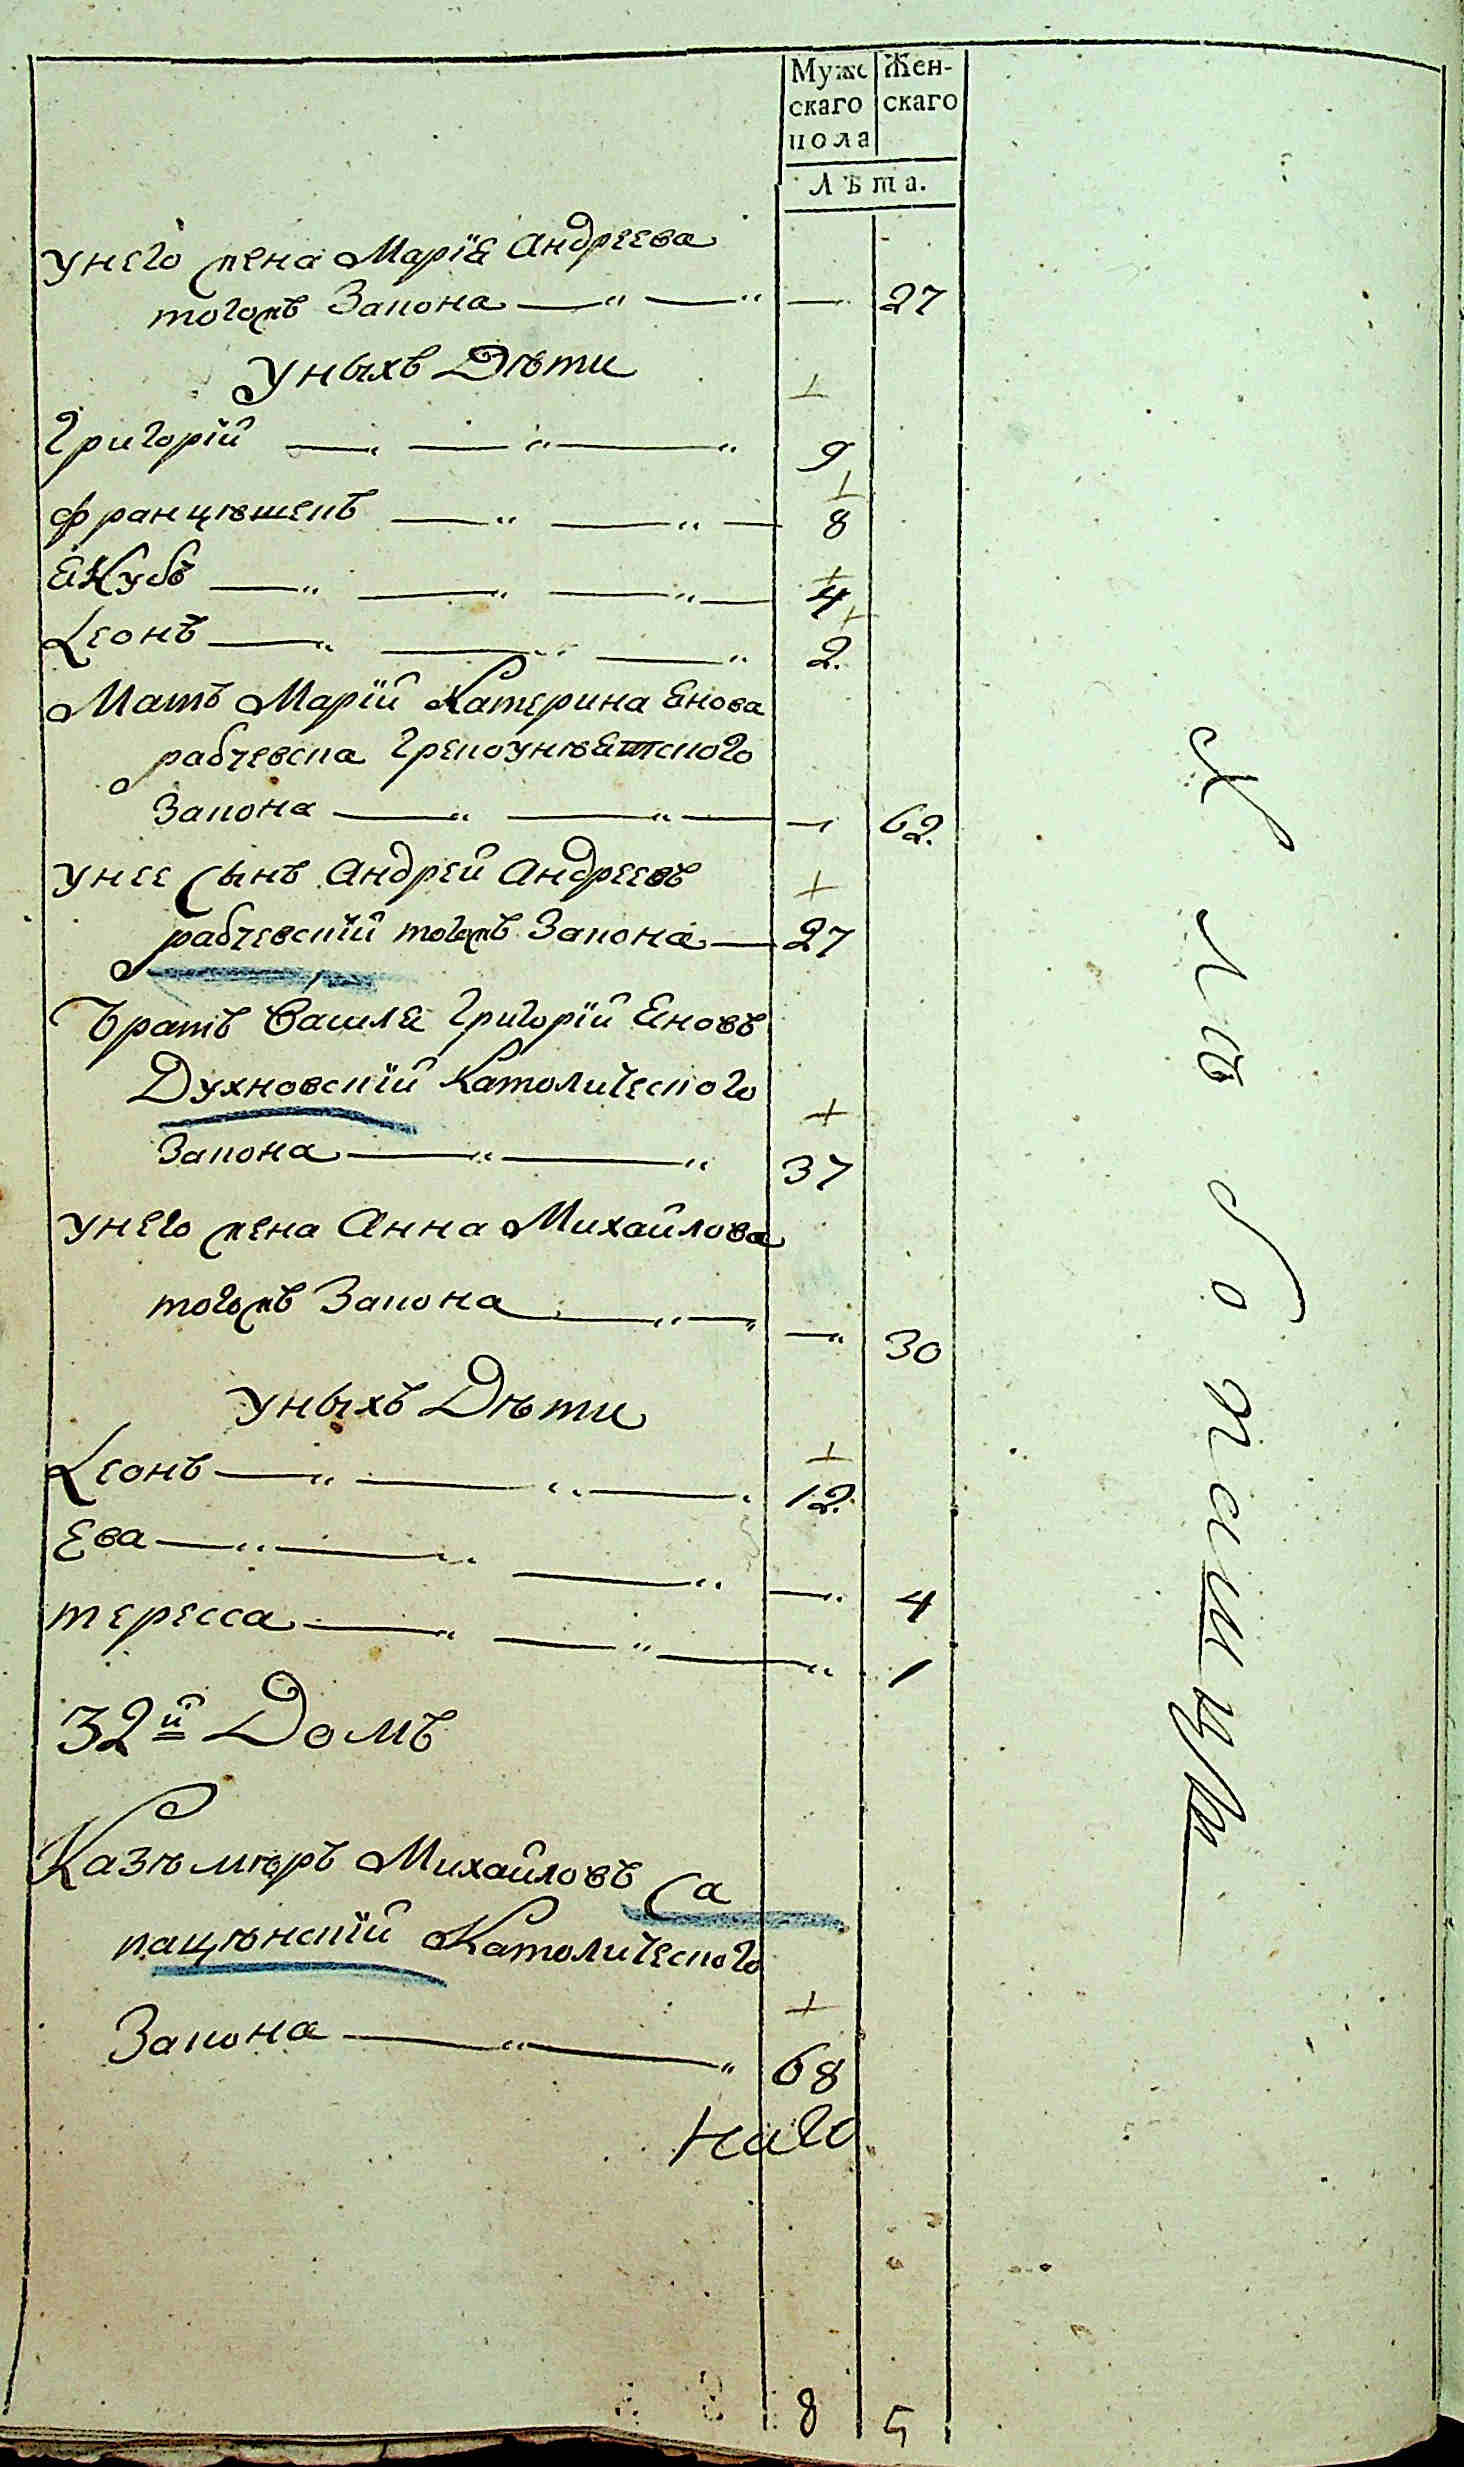 Мужс Жен-
скаго скаго
пола
Лѣта.
унего жена Марія Андреева
тогожъ Закона — 27
уныхъ Дѣти
Григорій 9
францѣшекъ 8
Якубъ 4
Леонъ 2.
Мать Марій Катерина Янова
рабчевска Грекоунѣятского
Закона — 62.
унее Сынъ Андрей Андреевъ
рабчевскій тогожъ Закона — 27
Братъ Василя Григорій Яновъ
Духновскій Католического
Закона 37
унего жена Анна Михайлова
тогожъ Закона — 30
уныхъ Дѣти
Леонъ 12.
Ева — 4
тересса — 1
32й Домъ
Казѣмѣръ Михайловъ Са
пацѣнскій Католического
Закона 68
Него
8 5